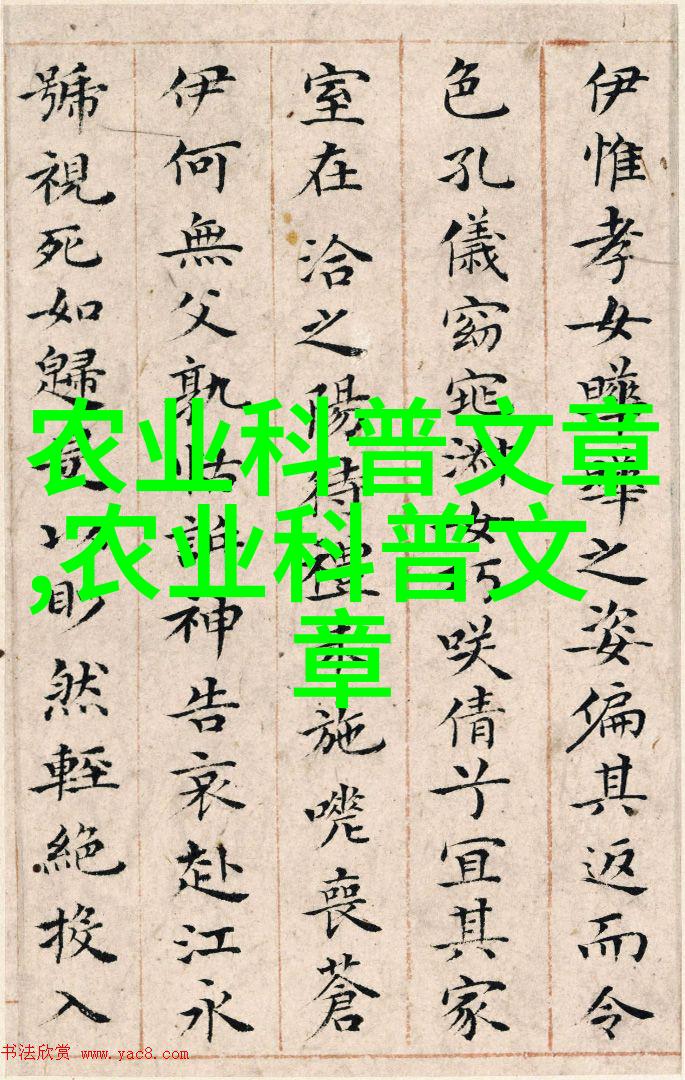 伊惟孝女曄曄之姿偏其返而令
色孔儀窈窕淑女巧咲倩兮宜其家
室在洽之陽待禮未施嗟喪蒼
伊何無父孰怙訴神告哀赴江永
號視死如歸是以眇然輕絕投入
农业科普文章
,农业科普文
章
书法欣赏 www.yac8.com